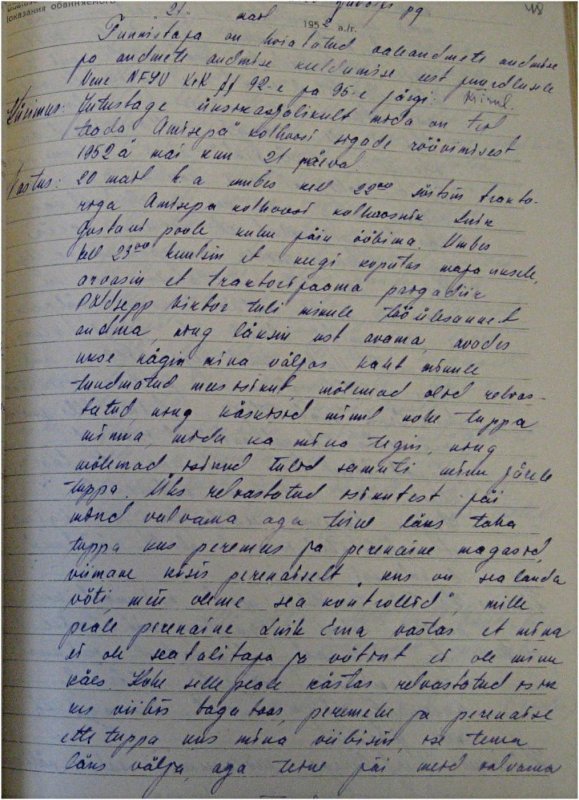 показания обвиняемого
21. mail
1952 a./г.
48
Tunnistaja on hoiatatud valeandmete andmise
ja andmete andmise keeldumise eest juurdlusele
Vene NFSV KrK §§ 92-e ja 95-e järgi.
Küsimus: Jutustage üksikasjalikult mida on teil
teada "Amisepa" kolhoosi sigade röövimisest
1952 a mai kuu 21 päeval
Vastus: 20 mail k.a umbes kell 22 00 sõitsin trakto-
riga Amisepa kolhoosi kolhoosnik Luik
Gustavi poole kuhu jäin ööbima. Umbes
kell 23 00 kuulsin et keegi koputas maja uksele,
arvasin et traktorijaama brigadiir
Viktor tuli minule tööülesannet
andma, ning läksin ust avama, avades
ukse nägin mina väljas kaht minule
tundmatud meesisikut, mõlemad olid relvas-
tatud, ning käskisid minul kohe tuppa
minna, mida ka mina tegin, ning
mõlemad isikud tulid samuti minu järele
tuppa. Üks relvastatud isikutest jäi
meid valvama aga teine läks taha
tuppa kus peremees ja perenaine magasid,
viimane küsis perenaiselt "kus on sealauda
võti, meie oleme sea kontrollid", mille
peale perenaine Luik Erna vastas et mina
ei ole seatalitaja ja võtit ei ole minu
käes. Kohe selle peale käskis relvastatud isik
kes viibis tagatoas, peremehe ja perenaise
ette tuppa kus mina viibisin, ise tema
läks välja, aga teine jäi meid valvama